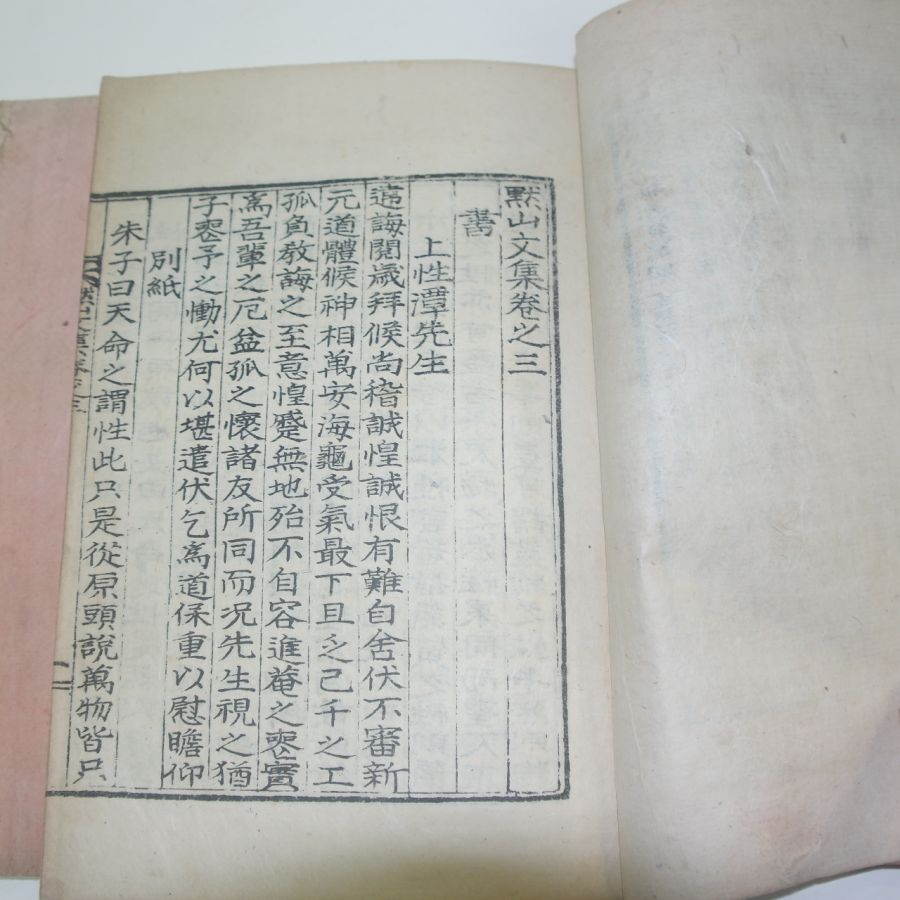 默山文集卷之三
書
上性潭先生
違誨閱歲拜候尙稽誠惶誠恨有難自舍伏不審新
元道體候神相萬安海龜受氣最下且乏己千之工
孤負敎誨之至意惶蹙無地殆不自容進菴之喪實
爲吾輩之厄益孤之懷諸友所同而况先生視之猶
子喪予之慟尤何以堪遣伏乞爲道保重以慰瞻仰
別紙
朱子曰天命之謂性此只是從原頭說萬物皆只